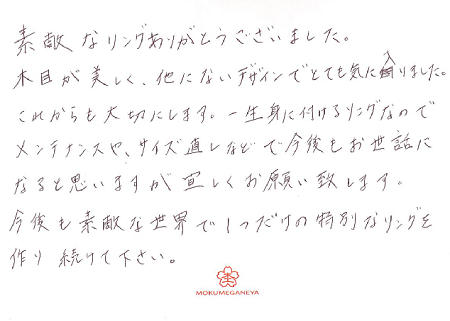 素敵なリングありがとうございました。
木目が美しく、他にないデザインでとても気に入りました。
これからも大切にします。一生身に付けるリングなので
メンテナンスや、サイズ直しなどで今後もお世話に
なると思いますが宜しくお願い致します。
今後も素敵な世界で1つだけの特別なリングを
作り続けて下さい。
MOKUMEGANEYA